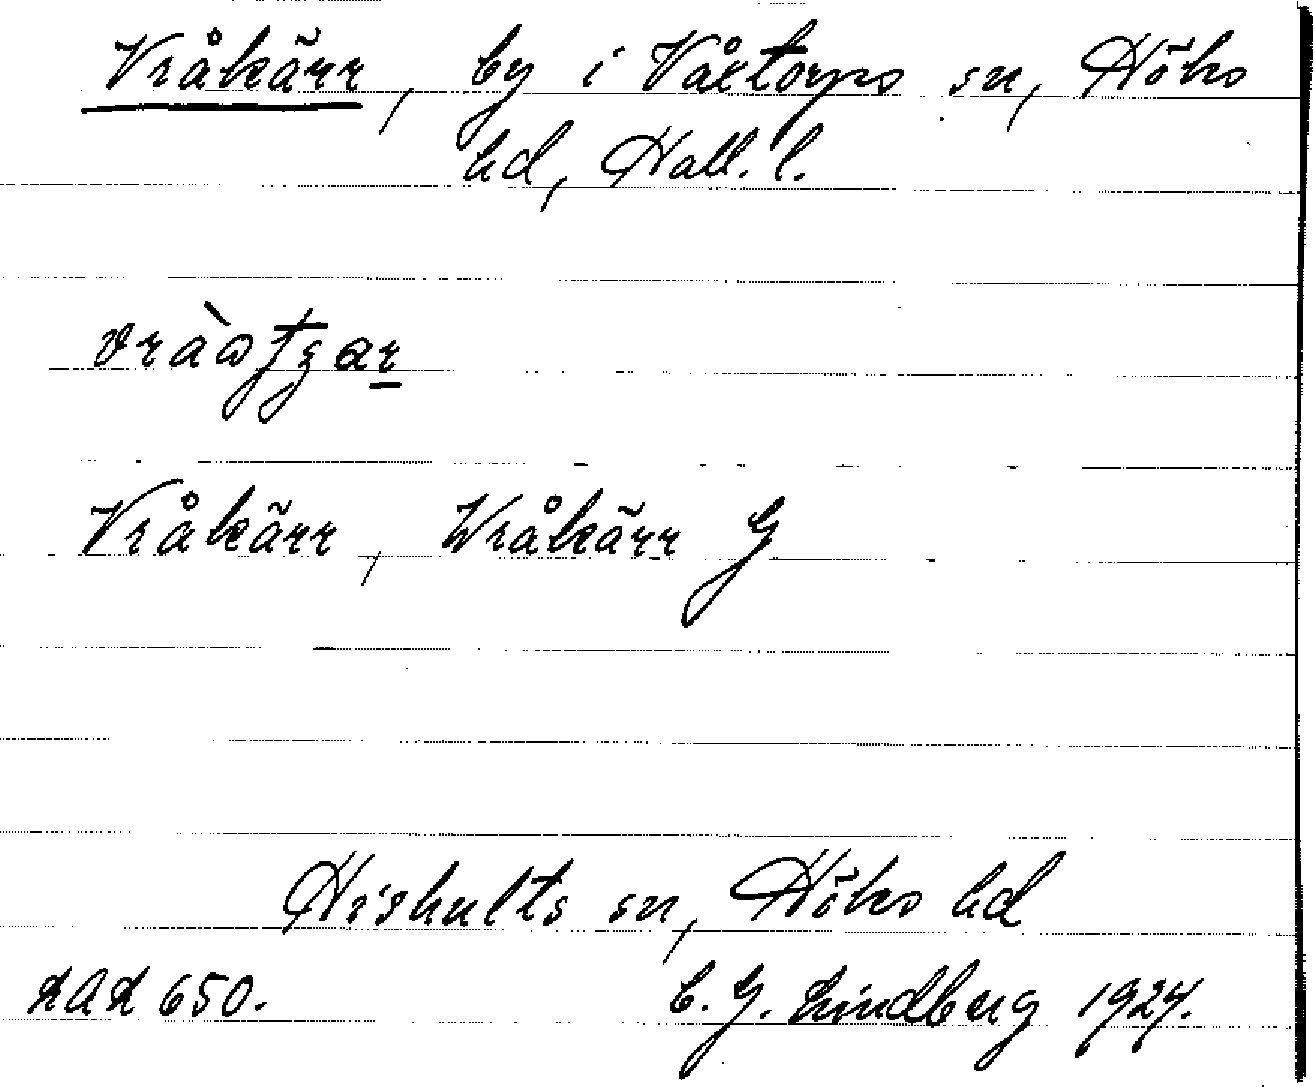 Vråkärr, by i Våxtorps sn, Höks
hd, Hall. l.
Vråkärr, Wråkärr G
Hishults sn, Höks hd
650.
C. G. Lindberg 1924.